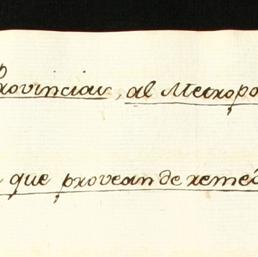 Provincias, al Metropo
que provean de remed